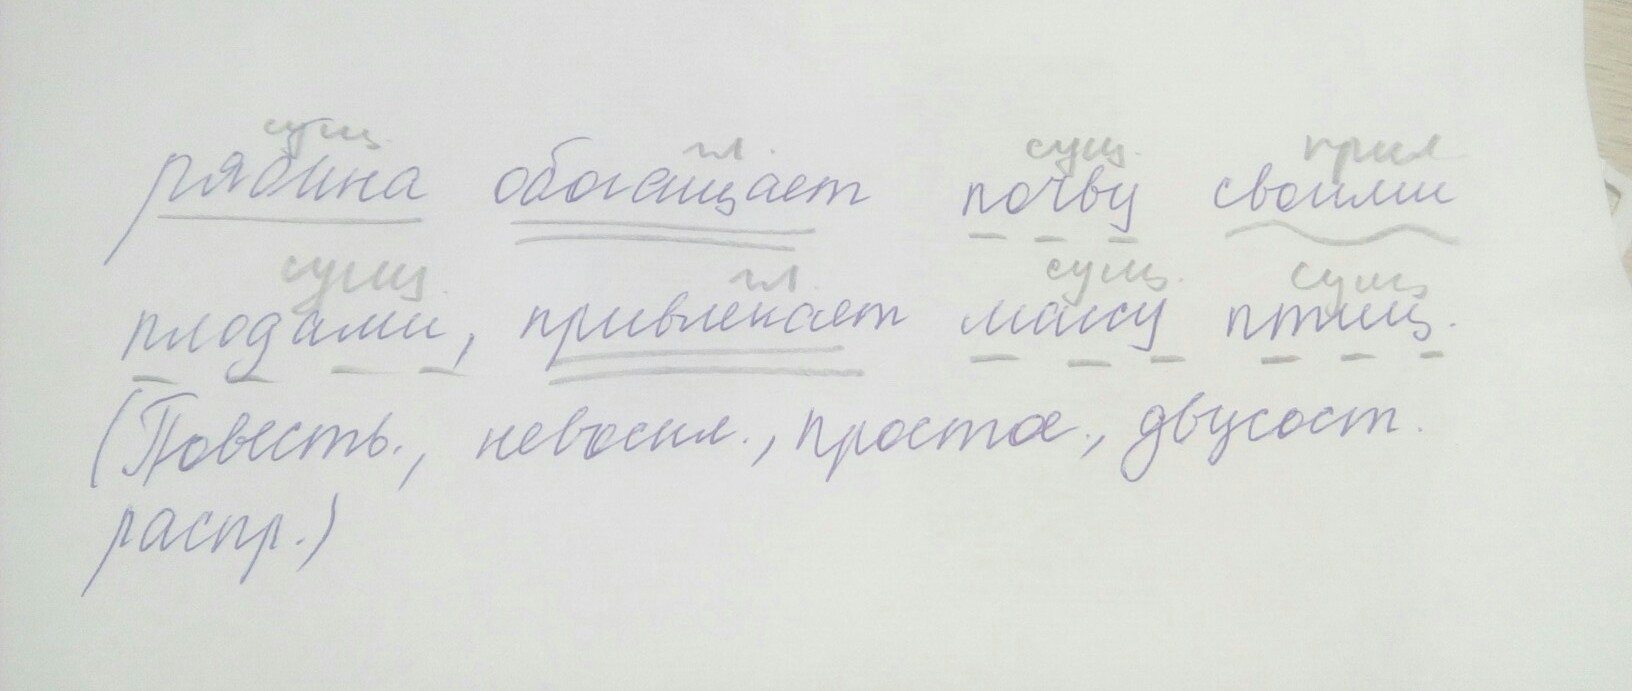 сущ. гл. сущ. прил
рябина обогащает почву своими
сущ. гл. сущ. сущ
плодами, привлекает массу птиц.
(Повесть., невоскл., простое., двусост.
распр.)